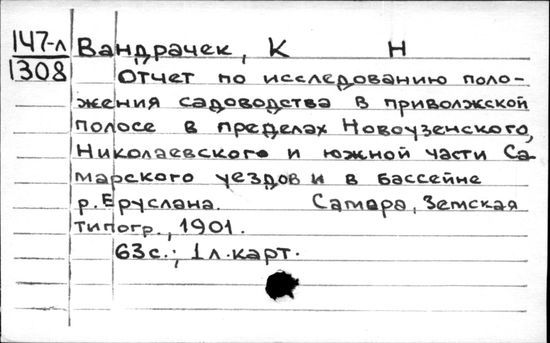 147-л Вандрачек, К Н
1308 Отчет по исследованию поло-
жения садоводства в приволжской
полосе в пределах Новоузенского,
Николаевского и южной части Са-
марского уездов и в бассейне
р. Еруслана. Самара, Земская
типогр., 1901.
63 с.; 1 л. карт.